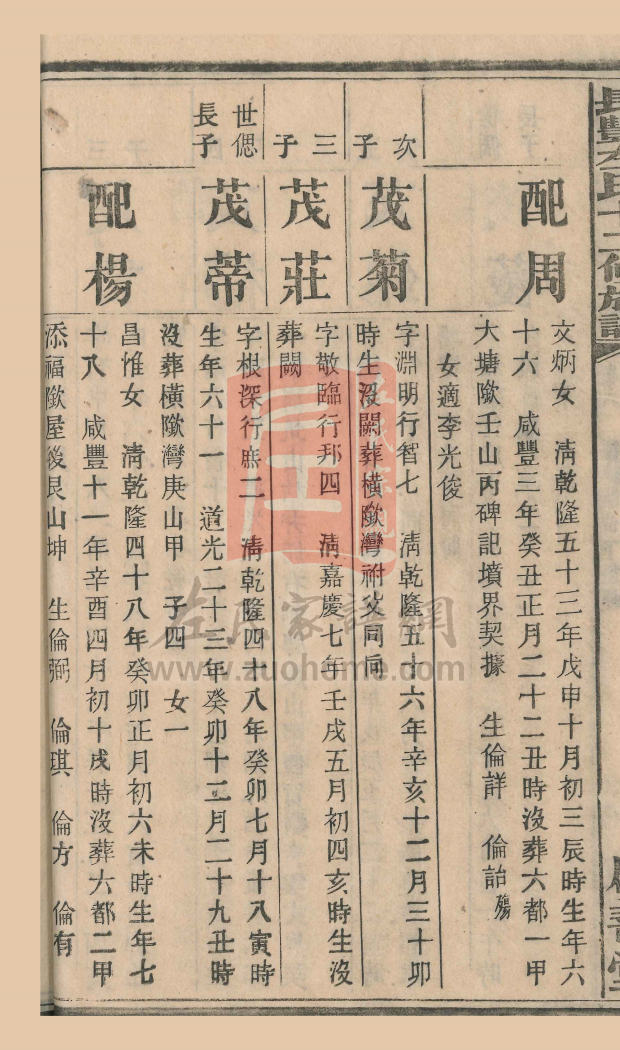 配周
文炳女　清乾隆五十三年戊申十月初三辰時生年六
十六　咸豐三年癸丑正月二十二丑時沒葬六都一甲
大塘隞壬山丙碑記墳界契據　生倫詳　倫詒殤
女適李光俊
次子
茂菊
字淵明行智七　清乾隆五十六年辛亥十二月三十卯
時生沒闕葬橫隞灣祔父同向
三子
茂莊
字敬臨行邦四　清嘉慶七年壬戌五月初四亥時生沒
葬闕
世偲長子
茂蒂
字根深行庶二　清乾隆四十八年癸卯七月十八寅時
生年六十一　道光二十三年癸卯十二月二十九丑時
沒葬橫隞灣庚山甲　子四　女一
配楊
昌惟女　清乾隆四十八年癸卯正月初六未時生年七
十八　咸豐十一年辛酉四月初十戌時沒葬六都二甲
添福隞屋後艮山坤　生倫弼　倫琪　倫方　倫有
左氏家譜網
www.zuohome.com